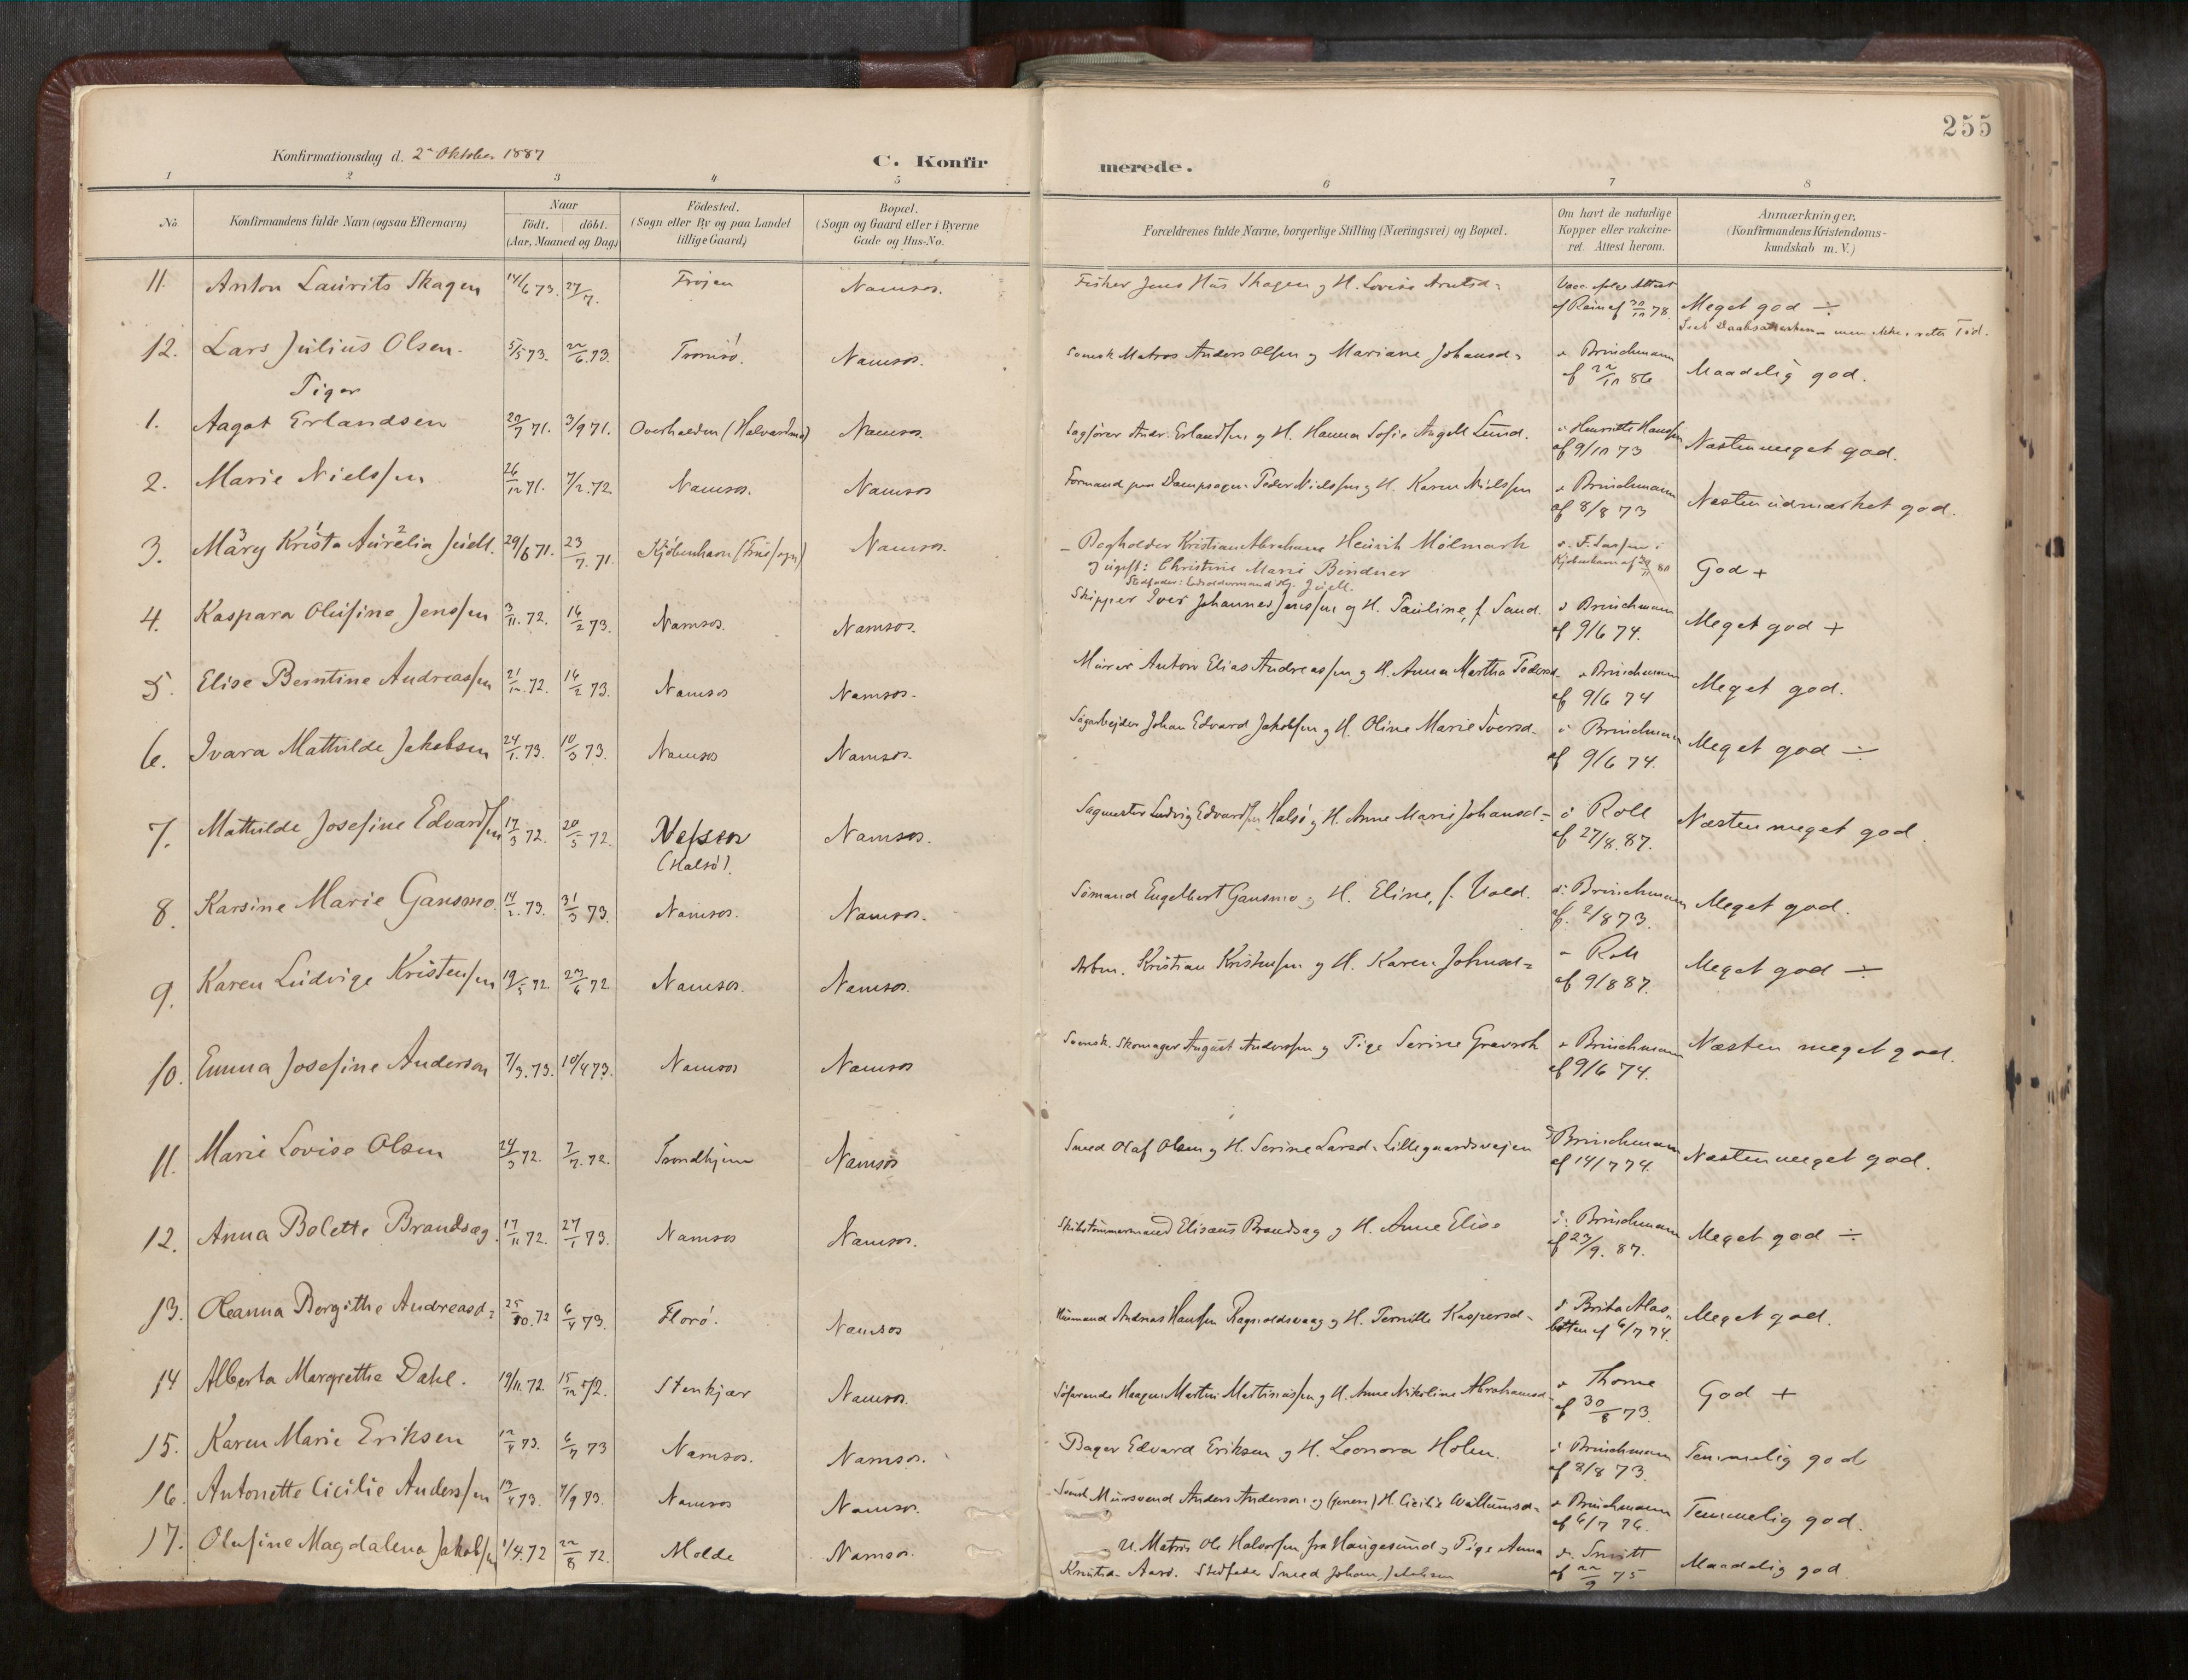 255
Konfirmationsdag d. 2 Oktober 1887
C. Konfir merede.
1 2 3 4 5 6 7 8
No
Konfirmandens fulde Navn (ogsaa Efternavn)
Naar
födt. döbt.
(Aar, Maaned og Dag)
Födested.
(Sogn eller By og paa Landet
tillige Gaard)
Bopæl.
(Sogn og Gaard eller i Byerne
Gade og Hus-No.
Forældrenes fulde Navne, borgerlige Stilling (Næringsvei) og Bopæl.
Om havt de naturlige
Kopper eller vakcine-
ret. Attest herom.
Anmærkninger.
(Konfirmandens Kristendoms-
kundskab m. V.)
11. Anton Laurits Skagen 14/6 73. 27/7. Frøjen Namsos. Fisker Jens Skagen og H. Lovise Arntsd= Vacc. ifølge Attest
af 78. Meget god ÷
men ikke i rette Tid.
12. Lars Julius Olsen. 5/5 73. 22/6 73. Tromsö. Namsos. Svensk Matros Anders Olsen og Mariane Johansd= Brinchmann
af 22/10 86 Maadelig god.
Piger
1. Aagot Erlandsen 20/7 71. 3/9 71. Overhalden (Halvardmo) Namsos. Sagförer Andr. Erlandsen og H. Hanna Sofie Angell Lund. Henriette Hansen
af 9/10 73 Næsten meget god.
2. Marie Nielssen 26/12 71. 7/2 72. Namsos. Namsos Formand paa Dampsagen Peder Nielssen og H. Karen Nielssen Brinchmann
af 8/8 73 Næsten udmærket god.
3. Mary Krista Aurelia Juell. 29/6 71. 23/7 71. Kjöbenhavn (Frue sogn) Namsos. Bogholder Kristian Abraham Heinrik Mölmark
og ugift: Christine Marie Bindner
Stedfader: Juell.
Kjöbenhavn af 80 God +
4. Kaspara Olufine Jenssen 3/11. 72. 16/2 73. Namsos. Namsos. Skipper Iver Johannes Jenssen og H. Pauline, f. Sand. Brinchmann
af 9/6 74. Meget god +
5. Elise Berntine Andreassen 21/12 72. 16/2 73. Namsos Namsos. Murer Anton Elias Andreassen og H. Anna Martha Pedersd. Brinchmann
af 9/6 74 Meget god.
6. Ivara Mathilde Jakobsen 24/1. 73. 10/3 73. Namsos Namsos. Sagarbeider Johan Edvard Jakobsen og H. Oline Marie Iversd. Brinchmann
af 9/6 74. Meget god ÷
7. Mathilde Josefine Edvardsen 17/3 72. 20/5 72. Nessen
(Halsö). Namsos. Sagmester Ludvig Edvardsen Halsö og H. Anne Marie Johansd= Roll
af 27/8. 87. Næsten meget god.
8. Karsine Marie Gansmo. 14/2. 73. 31/3 73. Namsos. Namsos. Sömand Engelbert Gansmo og H. Eline, f. Vold. Brinchmann
af. 2/8 73. Meget god.
9. Karen Ludvige Kristensen 19/5 72 23/6 72 Namsos. Namsos. Arbm. Kristian Kristensen og H. Karen Johnsd= Roll
af 9/8 87. Meget god ÷
10. Emma Josefine Anderson 7/3. 73. 10/4 73. Namsos Namsos Svensk. Skomager August Anderssen og Pige Serine Brinchmann
af 9/6 74. Næsten meget god.
11. Marie Lovise Olsen 24/3 72. 7/7. 72. Trondhjem Namsos Smed Olaf Olsen og H. Serine Larsd= Lillegaardsvejen Brinchmann
af 14/7 74. Næsten meget god.
12. Anna Bolette Brandsæg. 17/11 72. 27/1 73. Namsos Namsos. Skibstømmermand Elisæus Brandsæg og H. Anne Elise Brinchmann
af 23/9. 87. Meget god ÷
13. Oleanna Bergithe Andreasd= 25/10. 72 6/4 73. Florö. Namsos Husmand Andreas Hansen og H. Pernille Kaspersd= Brita
af 6/7 74. Meget god.
14 Alberta Margrethe Dahl. 19/11. 72. 15/12 72. Stenkjær Namsos. Söfarende Haagen Martin Mathiassen og H. Anne Nikoline Abrahamsd Thome
af 30/8 73. God +
15. Karen Marie Eriksen 12/4 73. 6/7 73 Namsos. Namsos. Bager Edvard Eriksen og H. Leonora Holm. Brinchmann
af 8/8 73. Temmelig god
16. Antonette Cicilie Anderssen 13/4 73. 7/9 73. Namsos Namsos. Svensk Mursvend Anders Anderson og (senere) H. Cicilie Brinchmann
af 6/7 76. Temmelig god.
17. Olufine Magdalena Jakobsen 1/4. 72 22/8 72. Molde Namsos. U. Matros Ole Halvorsen fra Haugesund og Pige Anna
Knutsd= Aarö. Stedfader Smed Johan Jakobsen Smitt
af 22/9 75 Maadelig god